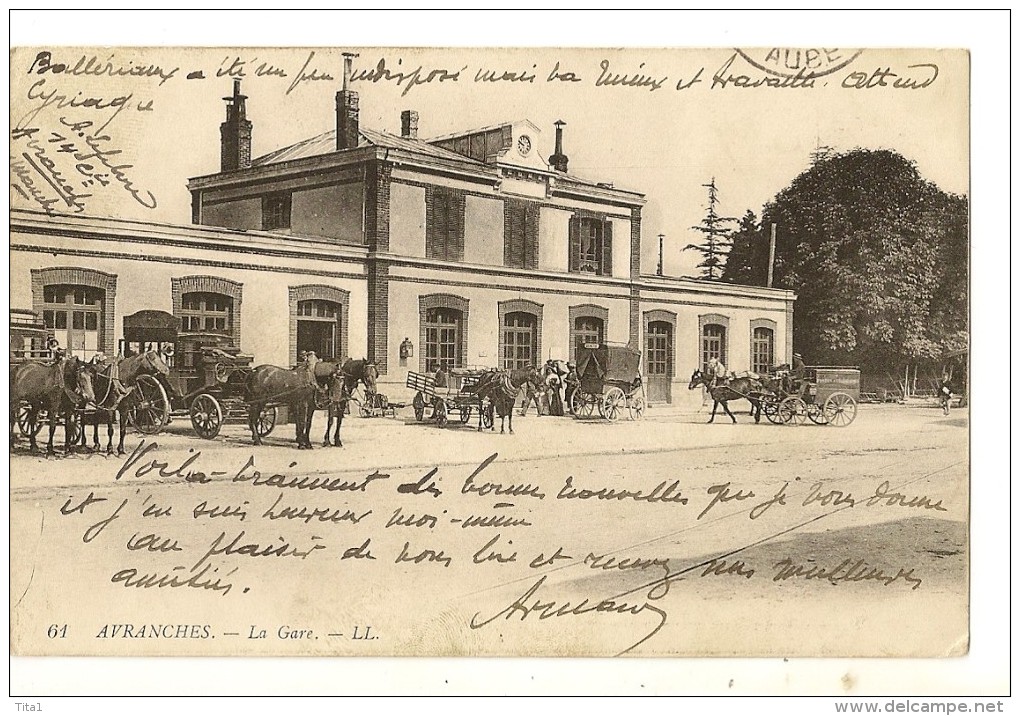 AUBE
Ballériaux a été un peu indisposé mais va mieux et travaille. attend
Cyriaque
A. Lefebvre
14
Avranches
Manche
Voilà vraiment des bonnes nouvelles que je vous donne
et j'en suis heureux moi-même
au plaisir de vous lire et recevez nos meilleures
amitiés.
Armand
61 AVRANCHES. — La Gare. — LL.
Tita1
www.delcampe.net